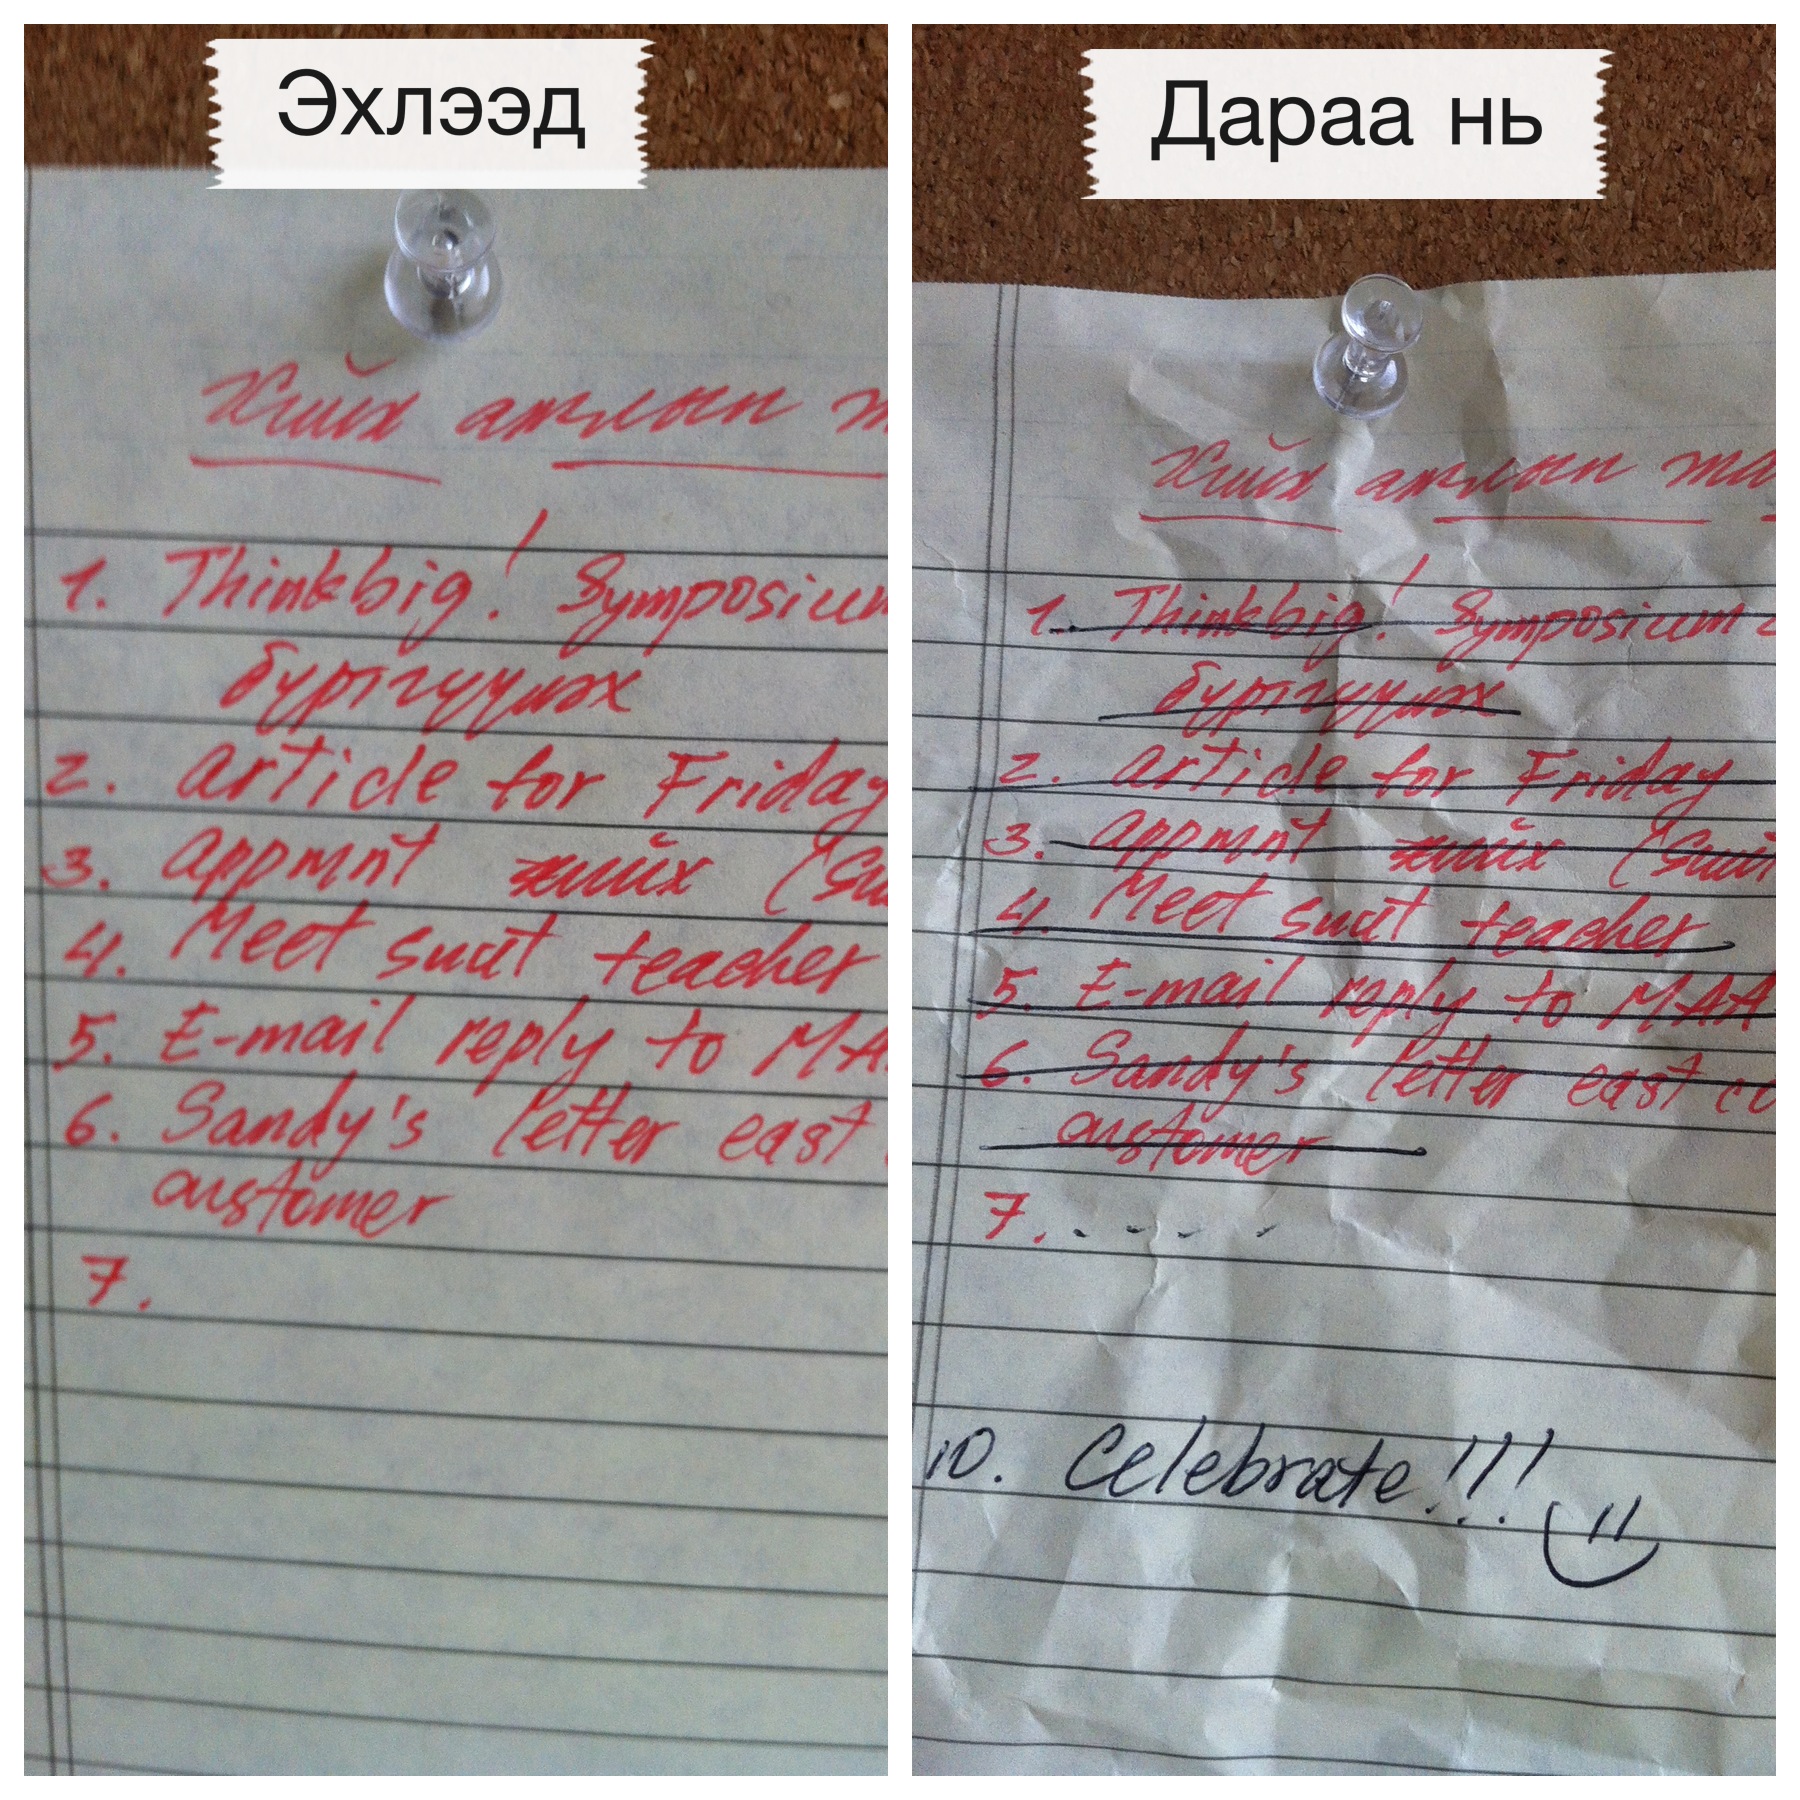 Эхлээд
Хийх ажлын
1. Thinkbig! Symposium
бүртгүүлэх
2. article for Friday
3. appmnt хийх
4. Meet suut teacher
5. E-mail reply to MA
6. Sandy's letter east
customer
7.
Дараа нь
Хийх ажлын
1. Thinkbig! Symposium
бүртгүүлэх
2. article for Friday
3. appmnt хийх
4. Meet suut teacher
5. E-mail reply to MAA
6. Sandy's letter east co
customer
7. . - - -
10. Celebrate!!!